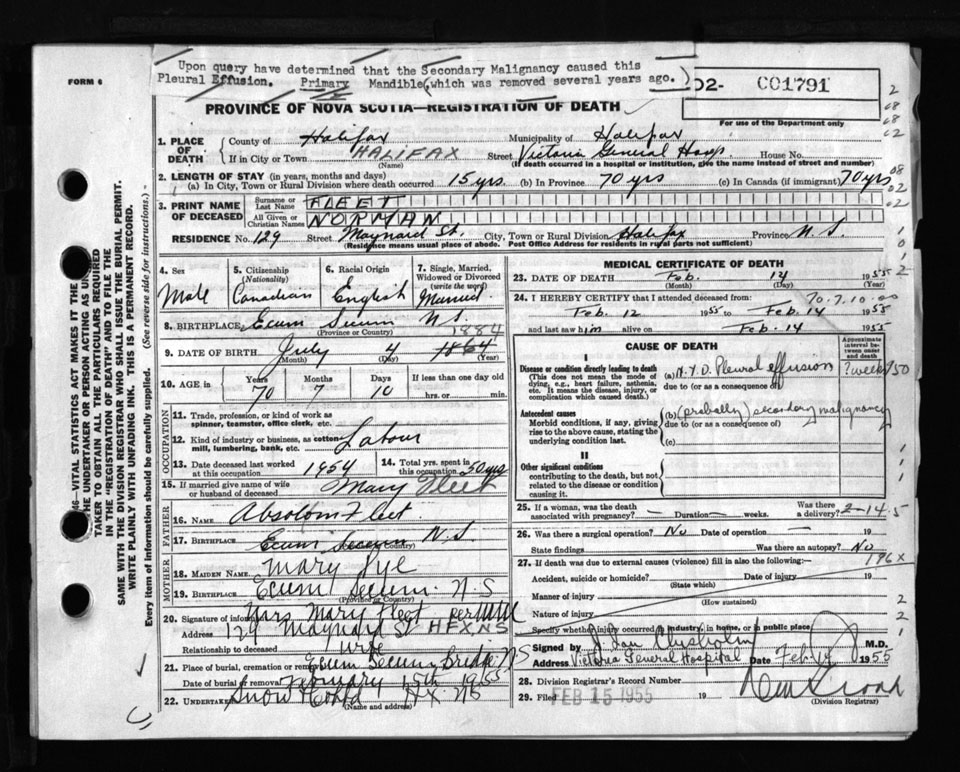 Upon query have determined that the Secondary Malignancy caused this
Pleural Effusion. Primary Mandible (which was removed several years ago.)
FORM 6
02- C01791
For use of the Department only
PROVINCE OF NOVA SCOTIA—REGISTRATION OF DEATH
1. PLACE OF DEATH
County of Halifax Municipality of Halifax
If in City or Town HALIFAX Street Victoria General Hosp. House No.
(Name) (If death occurred in a hospital or institution, give the name instead of street and number)
2. LENGTH OF STAY (in years, months and days)
(a) In City, Town or Rural Division where death occurred 15 yrs. (b) In Province 70 yrs (c) In Canada (if immigrant) 70 yrs
3. PRINT NAME OF DECEASED
Surname or Last Name FLEET
All Given or Christian Names NORMAN
RESIDENCE No. 129 Street Maynard St. City, Town or Rural Division Halifax Province N.S.
(Residence means usual place of abode. Post Office Address for residents in rural parts not sufficient)
4. Sex Male
5. Citizenship (Nationality) Canadian
6. Racial Origin English
7. Single, Married, Widowed or Divorced (write the word) Married
8. BIRTHPLACE Ecum Secum N.S.
(Province or Country)
1884
9. DATE OF BIRTH July 4 1864
(Month) (Day) (Year)
10. AGE in Years 70 Months 7 Days 10 If less than one day old hrs. or min.
OCCUPATION
11. Trade, profession, or kind of work as spinner, teamster, office clerk, etc.
12. Kind of industry or business, as cotton mill, lumbering, bank, etc. Labour
13. Date deceased last worked at this occupation 1954
14. Total yrs. spent in this occupation 50 yrs
15. If married give name of wife or husband of deceased Mary Fleet
FATHER
16. NAME Absolom Fleet
17. BIRTHPLACE Ecum Secum N.S.
(Province or Country)
MOTHER
18. MAIDEN NAME Mary Jye
19. BIRTHPLACE Ecum Secum N-S
(Province or Country)
20. Signature of informant Mrs Mary Fleet per
Address 129 Maynard St HFX NS
Relationship to deceased wife
21. Place of burial, cremation or removal Ecum Secum Bridge NS
Date of burial or removal February 15th 1955
22. Undertaker Snow Co Ltd HX NS
(Name and address)
MEDICAL CERTIFICATE OF DEATH
23. DATE OF DEATH Feb. 14 1955
(Month) (Day)
24. I HEREBY CERTIFY that I attended deceased from 70.7.10.00
Feb. 12 1955 to Feb. 14 1955
and last saw him alive on Feb. 14 1955
CAUSE OF DEATH
Approximate interval between onset and death
I
Disease or condition directly leading to death
(This does not mean the mode of dying, e.g., heart failure, asthenia, etc. It means the disease, injury, or complication which caused death.)
(a) N.Y.D. Pleural effusion ? weeks
due to (or as a consequence of)
Antecedent causes
Morbid conditions, if any, giving rise to the above cause, stating the underlying condition last.
(b) (probably) secondary malignancy
due to (or as a consequence of)
(c)
II
Other significant conditions
contributing to the death, but not related to the disease or condition causing it.
25. If a woman, was the death associated with pregnancy? — Duration — weeks. Was there a delivery?
2-14.5
26. Was there a surgical operation? No Date of operation — 19
State findings Was there an autopsy? No
27. If death was due to external causes (violence) fill in also the following:
196X
Accident, suicide or homicide? Date of injury 19
(State which)
Manner of injury
(How sustained)
Nature of injury
Specify whether injury occurred in industry, in home, or in public place
Signed by J. Ian Chisholm M.D.
Address Victoria General Hospital Date Feb. 14 1955
28. Division Registrar's Record Number
29. Filed FEB 15 1955 19
(Division Registrar)
46—VITAL STATISTICS ACT MAKES IT THE
THE UNDERTAKER OR PERSON ACTING AS UNDER-
TAKER TO OBTAIN ALL THE PARTICULARS REQUIRED
IN THE "REGISTRATION OF DEATH" AND TO FILE THE
SAME WITH THE DIVISION REGISTRAR WHO SHALL ISSUE THE BURIAL PERMIT.
WRITE PLAINLY WITH UNFADING INK. THIS IS A PERMANENT RECORD.
Every item of information should be carefully supplied. (See reverse side for instructions.)